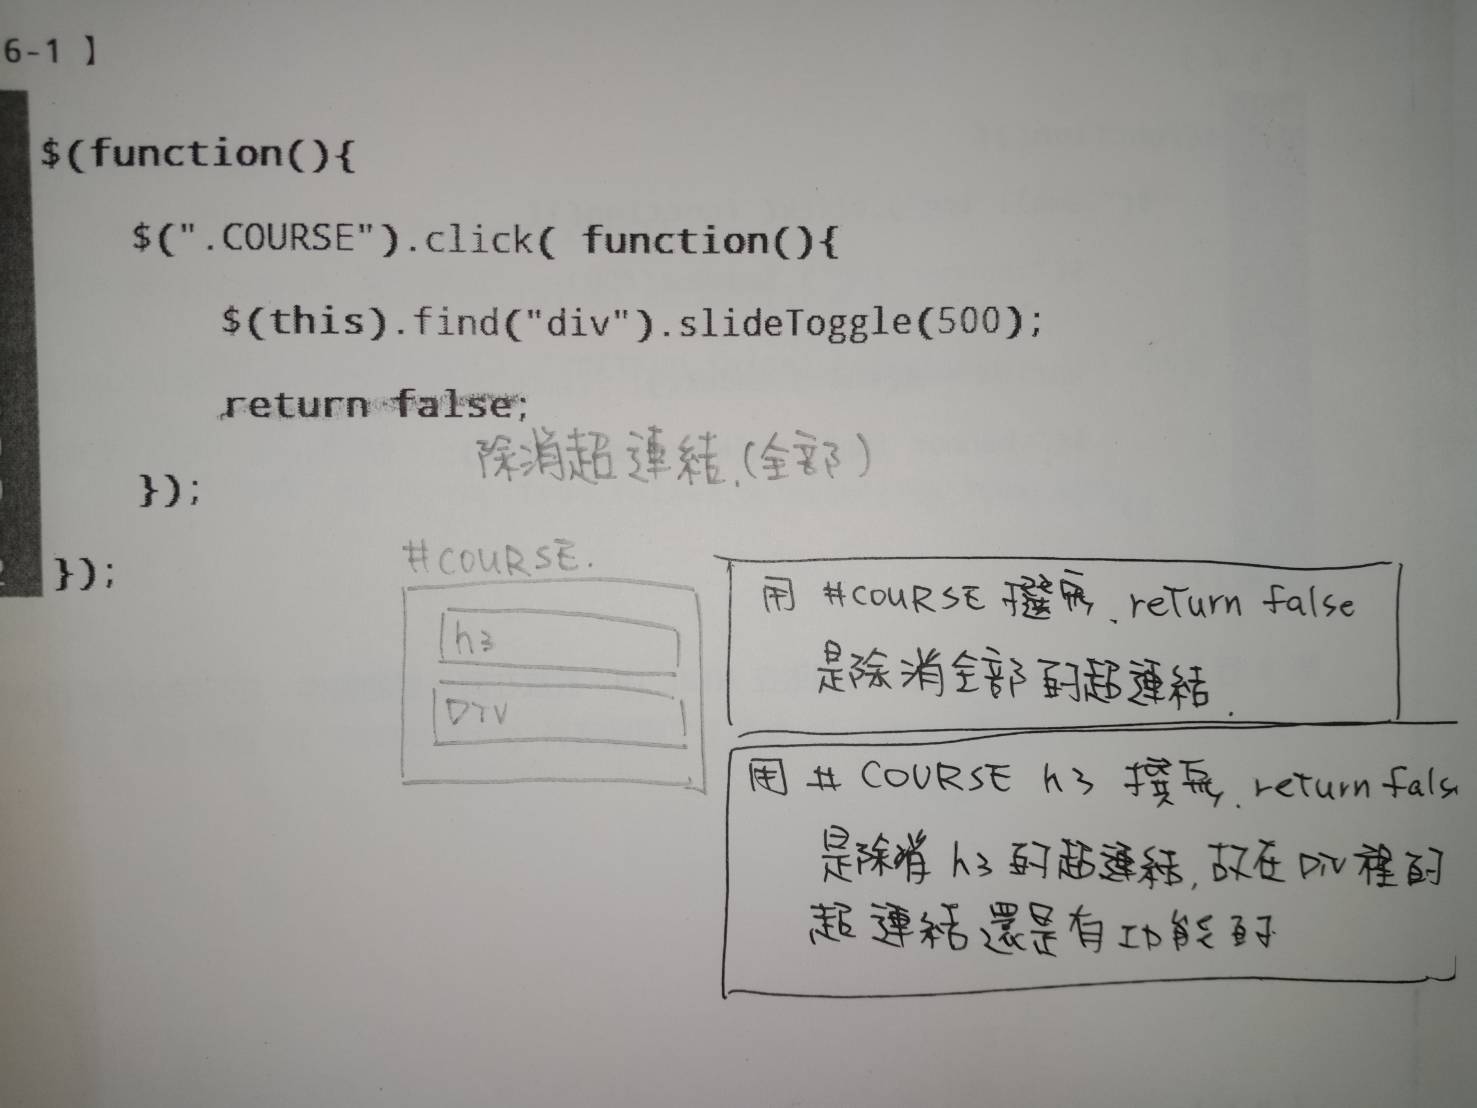 6-1 】
$(function(){
$(".COURSE").click( function(){
$(this).find("div").slideToggle(500);
return false;
除消超連結.(全部)
});
});
#COURSE.
h3
DIV
用 #COURSE 撰寫. return false
是除消全部的超連結.
用 # COURSE h3 撰寫. return fals
是除消 h3 的超連結, 故在 DIV 裡的
超連結還是有功能的